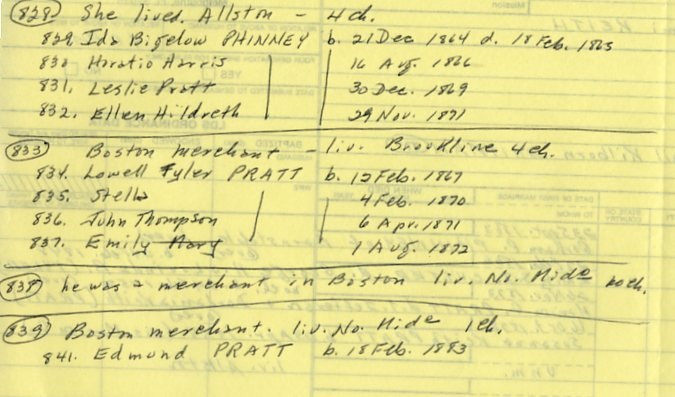 828 She lived Allston - 4 ch.
829. Ida Bigelow PHINNEY b. 21 Dec 1864 d. 18 Feb. 1865
830 Horatio Harris 16 Aug. 1866
831. Leslie Pratt 30 Dec. 1869
832. Ellen Hildreth 29 Nov. 1871
833 Boston merchant - liv. Brookline 4 ch.
834. Lowell Tyler PRATT b. 12 Feb. 1867
835. Stella 4 Feb. 1870
836. John Thompson 6 Apr. 1871
837. Emily Mary 1 Aug. 1872
838 he was a merchant in Boston liv. No. Mide no ch.
839 Boston merchant. liv. No. Mide 1 ch.
841. Edmund PRATT b. 18 Feb. 1883